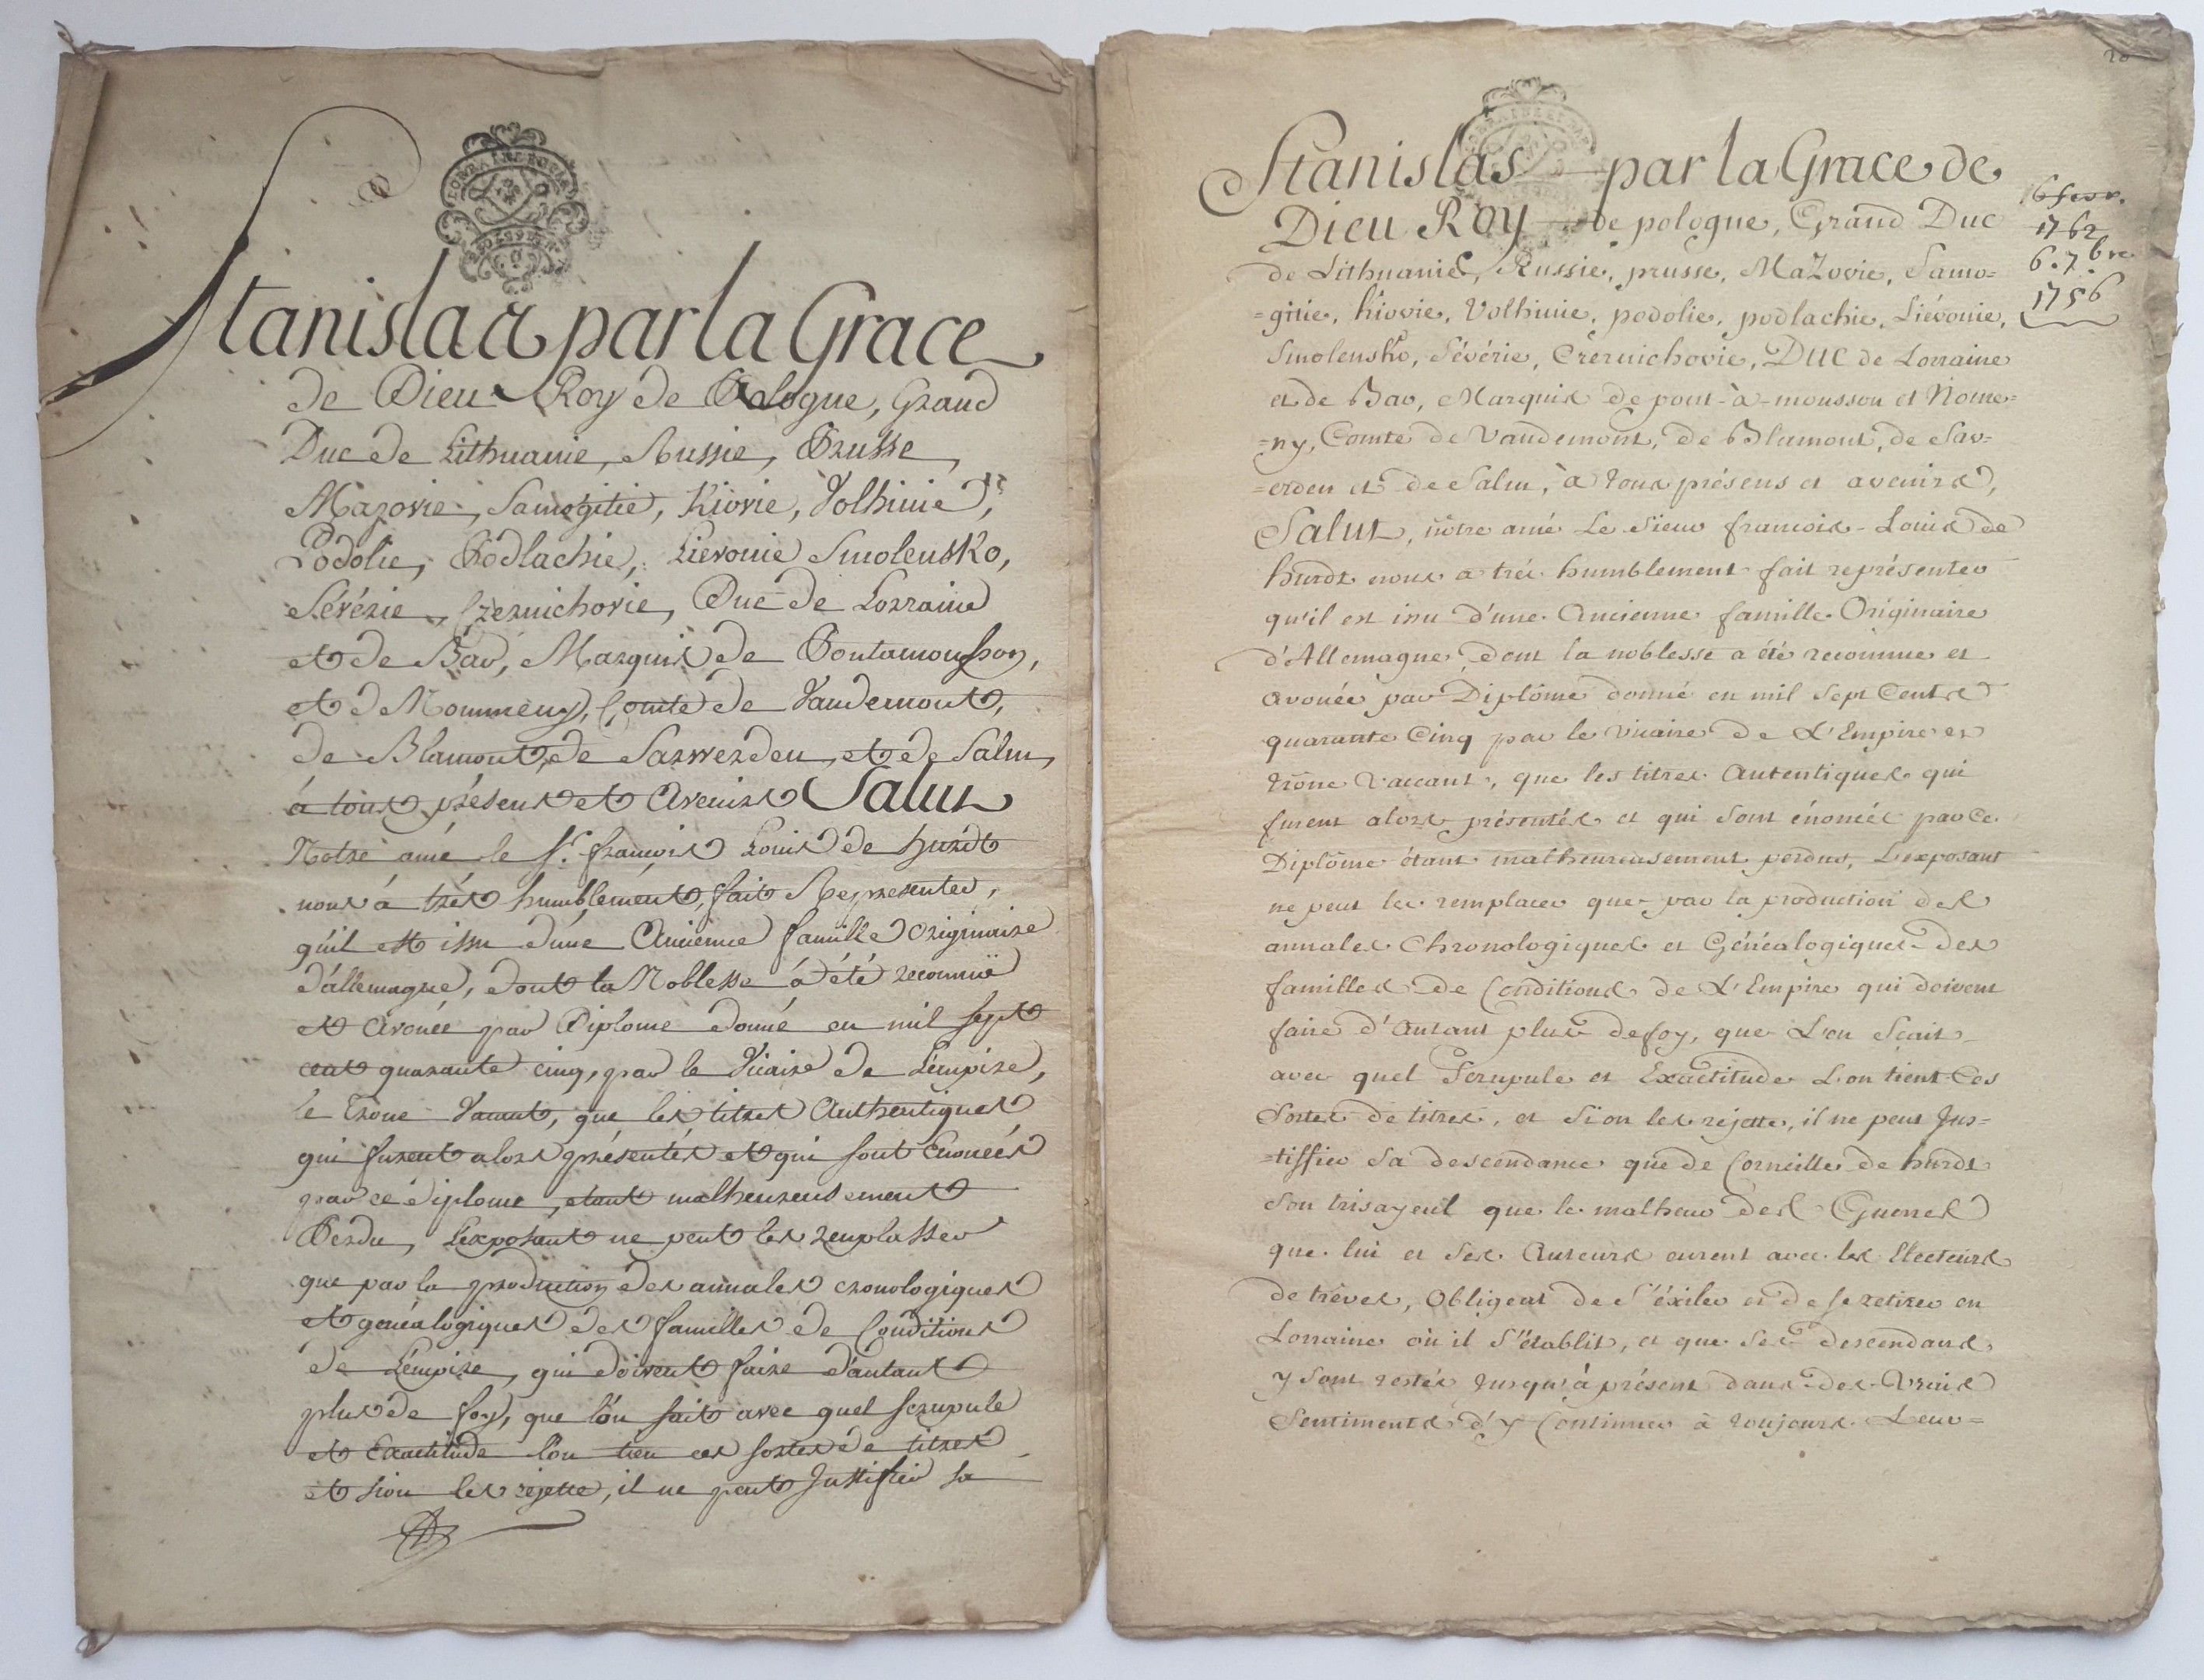 Stanislas par la Grace
de Dieu Roy de Pologne, Grand
Duc de Lithuanie, Russie, Prusse,
Mazovie, Samogitie, Kiovie, Volhinie,
Podolie, Podlachie, Lievonie Smolensko,
Sévérie, Czernichovie, Duc de Lorraine
et de Bar, Marquis de Pontamousson,
et de Nommény, Comte de Vaudemont,
de Blamont, de Sarwerden, et de Salm,
à tous présens et Avenirs Salut
Notre amé le Sr. françois Louis de hurdt
nous à très humblement, fait Representer,
qu'il est issu d'une Ancienne famille Originaire
d'allemagne, dont la Noblesse à été reconnuë
et Avouée par Diplome donné en mil sept
cent quarante cinq, par le Vicaire de L'empire,
le Trone Vacant, que les titres Authentiques
qui furent alors présentés et qui sont Enoncés
par ce diplome, etant malheureusement
Perdu, L'exposant ne peut les remplasser
que par la production des annales cronologiques
et genéalogiques des familles de Conditions
de L'empire, qui doivent faire d'autant
plus de foy, que l'on sait avec quel scrupule
et Exactitude l'on tien ces sortes de titres
et sion les rejette, il ne peut Justifier sa
20
Stanislas par la Grace de
Dieu Roy de pologne, Grand Duc
de Lithuanie, Russie, prusse, MaZovie, Samo=
=gitie, Kiovie, Volhinie, podolie, podlachie, Liévonie,
Smolensko, Sévérie, Czernichovie, Duc de Lorraine
et de Bar, Marquis de pont-à-mousson et Nome=
=ny, Comte de Vaudemont, de Blamont, de Sar=
=erden et de Salm, à tous présens et avenirs,
Salut, nôtre amé Le Sieur francois-Louis de
hurdt nous a très humblement fait représenter
qu'il est issu d'une Ancienne famille Originaire
d'Allemagne, dont la noblesse a été reconnue et
avouée par Diplôme donné en mil sept Cents
quarante Cinq par le Vicaire de L'Empire es
trône Vaccant, que les titres Autentiques qui
furent alors présentés et qui sont énoncés par Ce
Diplôme étant malheureusement perdus, L'exposant
ne peut les remplacer que par la production des
annales Chronologiques et Généalogiques des
familles de Conditions de L'Empire qui doivent
faire d'Autant plus de foy, que L'on Scait
avec quel Scrupule et Exactitude L'on tient Ces
Sortes de titres, et Si on les rejette, il ne peut Jus=
=tiffier Sa descendance que de Corneille de hurdt
Son trisayeul que le malheur des Guerres
que lui et Ses Auteurs eurent avec les Electeurs
de trêves, Obligent de S'éxiler et de se retirer en
Lorraine où il S'établit, et que Ses descendans
y Sont restés Jusqu'à présent dans des Vrais
Sentiments d'y Continuer à toujours Leur=
16 fevr.
1762
6. 7bre
1756